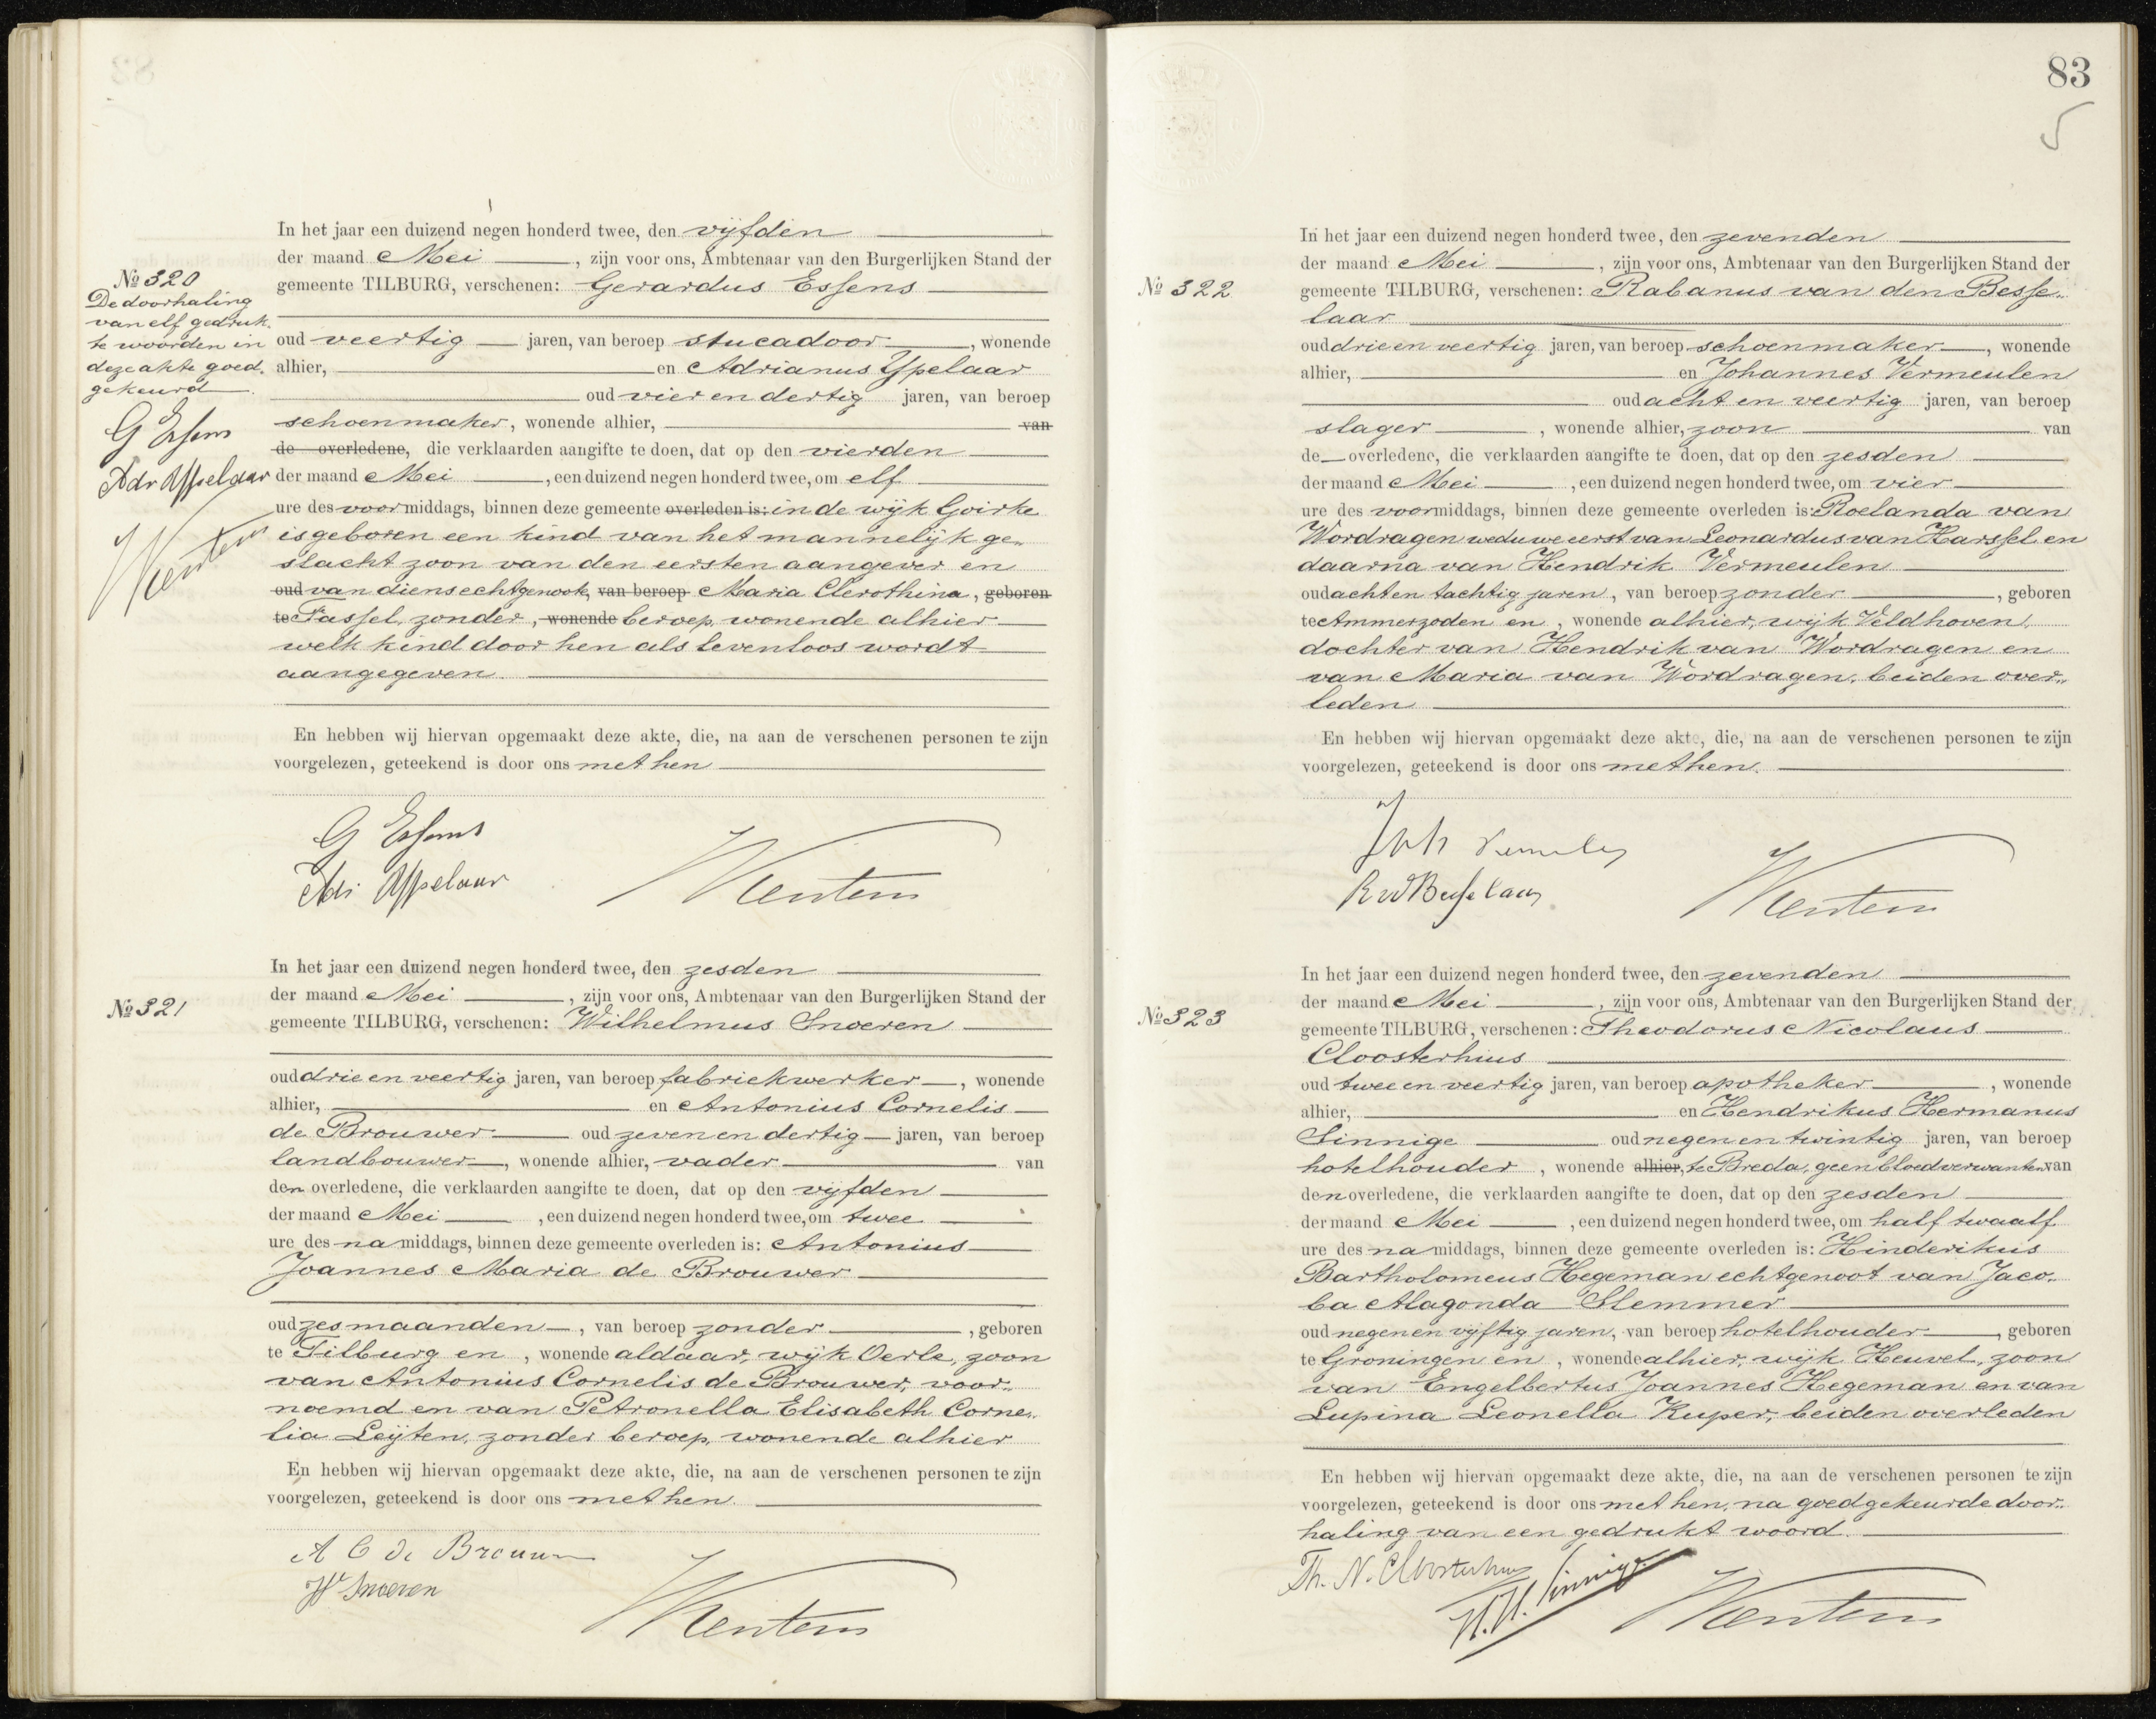 In het jaar een duizend negen honderd twee, den vijfden
der maand Mei, zijn voor ons, Ambtenaar van den Burgerlijken Stand der
gemeente TILBURG, verschenen: Gerardus Essens
No 320
De doorhaling
van elf gedruk-
te woorden in
deze akte goed-
gekeurd.
G Essens
Adr Ysselaar
oud veertig jaren, van beroep stucadoor, wonende
alhier, en Adrianus Yspelaar
oud vier en dertig jaren, van beroep
schoenmaker, wonende alhier, van
de overledene, die verklaarden aangifte te doen, dat op den vierden
der maand Mei, een duizend negen honderd twee, om elf
ure des voormiddags, binnen deze gemeente overleden is: in de wijk Goirke
is geboren een kind van het mannelijk ge-
slacht zoon van den eersten aangever en
oud van diens echtgenoote, van beroep Maria Clerothina, geboren
te Tassel, zonder, wonende beroep, wonende alhier
welk kind door hen als levenloos wordt
aangegeven.
En hebben wij hiervan opgemaakt deze akte, die, na aan de verschenen personen te zijn
voorgelezen, geteekend is door ons met hen
G Essens
No 321
In het jaar een duizend negen honderd twee, den zesden
der maand Mei, zijn voor ons, Ambtenaar van den Burgerlijken Stand der
gemeente TILBURG, verschenen: Wilhelmus Snoeren
oud drie en veertig jaren, van beroep fabriekwerker, wonende
alhier, en Antonius Cornelis
de Brouwer oud zeven en dertig jaren, van beroep
landbouwer, wonende alhier, vader van
den overledene, die verklaarden aangifte te doen, dat op den vijfden
der maand Mei, een duizend negen honderd twee, om twee
ure des namiddags, binnen deze gemeente overleden is: Antonius
Joannes Maria de Brouwer
oud zes maanden, van beroep zonder, geboren
te Tilburg en, wonende aldaar, wijk Oerle, zoon
van Antonius Cornelis de Brouwer, voor-
noemd en van Petronella Elisabeth Corne-
lia Leijten, zonder beroep, wonende alhier
En hebben wij hiervan opgemaakt deze akte, die, na aan de verschenen personen te zijn
voorgelezen, geteekend is door ons met hen.
A C de Brouwer
W Snoeren
83
5
No 322
In het jaar een duizend negen honderd twee, den zevenden
der maand Mei, zijn voor ons, Ambtenaar van den Burgerlijken Stand der
gemeente TILBURG, verschenen: Rabanus van den Besse-
laar
oud drie en veertig jaren, van beroep schoenmaker, wonende
alhier, en Johannes Vermeulen
oud acht en veertig jaren, van beroep
slager, wonende alhier, zoon van
de overledene, die verklaarden aangifte te doen, dat op den zesden
der maand Mei, een duizend negen honderd twee, om vier
ure des voormiddags, binnen deze gemeente overleden is: Roelanda van
Wordragen weduwe eerst van Leonardus van Harssel en
daarna van Hendrik Vermeulen
oud acht en tachtig jaren, van beroep zonder, geboren
te Ammerzoden en, wonende alhier, wijk Veldhoven,
dochter van Hendrik van Wordragen en
van Maria van Wordragen, beiden over-
leden
En hebben wij hiervan opgemaakt deze akte, die, na aan de verschenen personen te zijn
voorgelezen, geteekend is door ons met hen.
Joh Vermeulen
R vd Besselaar
No 323
In het jaar een duizend negen honderd twee, den zevenden
der maand Mei, zijn voor ons, Ambtenaar van den Burgerlijken Stand der
gemeente TILBURG, verschenen: Theodorus Nicolaus
Cloosterhuis
oud twee en veertig jaren, van beroep apotheker, wonende
alhier, en Hendrikus Hermanus
Sinnige oud negen en twintig jaren, van beroep
hotelhouder, wonende alhier, te Breda, geen bloedverwanten van
den overledene, die verklaarden aangifte te doen, dat op den zesden
der maand Mei, een duizend negen honderd twee, om half twaalf
ure des namiddags, binnen deze gemeente overleden is: Hinderikus
Bartholomeus Hegeman echtgenoot van Jaco-
ba Alagonda Slemmer
oud negen en vijftig jaren, van beroep hotelhouder, geboren
te Groningen en, wonende alhier, wijk Heuvel, zoon
van Engelbertus Joannes Hegeman en van
Lupina Leonella Kuper, beiden overleden
En hebben wij hiervan opgemaakt deze akte, die, na aan de verschenen personen te zijn
voorgelezen, geteekend is door ons met hen, na goedgekeurde door-
haling van een gedrukt woord.
Th. N. Cloosterhuis
H.H. Sinnige